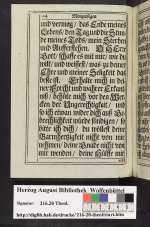 Morgensegen
und vermag / das Ende meines
Lebens / den Tag und die Stunde
meines Todes / mein Sterben
und Aufferstehen. O HErr
Gott / schaffe es mit mir / wie du
wilt / und weissest / was zu deiner
Ehre und meiner Seligkeit das
beste ist. Erhalte mich in deiner
Forcht und wahrer Erkäntniß /
behüte mich vor den
der Ungerechtigkeit / und
ob ich etwan wider dich aus Gebrechlichkeit
sündigte / so
bitte ich dich / du wollest deine
Barmhertzigkeit nicht von mir
nehmen / deine Gnade nicht von
mir wenden / deine Hülffe mir
Herzog August Bibliothek Wolfenbüttel
Signatur: 216.20 Theol.
http://diglib.hab.de/drucke/216-20-theol/start.htm